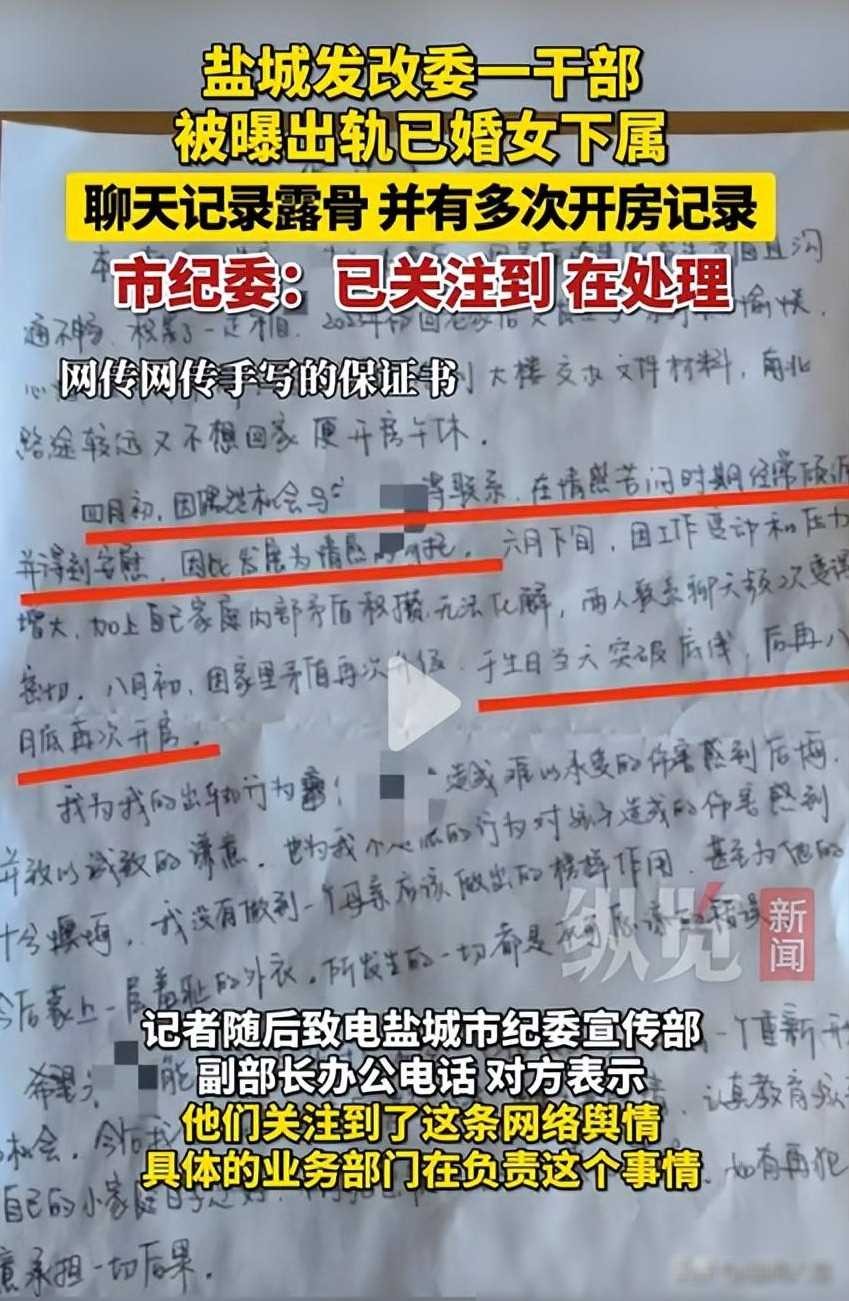 盐城发改委一干部
被曝出轨已婚女下属
聊天记录露骨 并有多次开房记录
市纪委：已关注到 在处理
通不畅，积累了一定
愉快，
网传网传手写的保证书
大楼交办文件材料，南北
路途较远又不想回家便开房午休。
四月初，因偶然机会与 得联系，在情感苦闷时期经常倾诉
并得到安慰，因此发展为情感的 托。六月下旬，因工作变动和压力
增大，加上自己家庭内部矛盾积攒无法化解，两人联系聊天频次变得
密切，八月初，因家里矛盾再次升级，于生日当天突破底线，后再八
月底再次开房。
我为我的出轨行为 造成难以承受的伤害感到后悔，
并致以诚致的谢意，也为我 的行为对孩子造成的伤害感到
十分懊悔，我没有做到一个母亲应该做出的榜样作用，甚至为他的
今后蒙上一层羞耻的外衣，所发生的一切都是 错误
纵览
新闻
记者随后致电盐城市纪委宣传部
副部长办公电话 对方表示
一个重新开
希望 能
认真教育孩
他们关注到了这条网络舆情
机会，今后我
具体的业务部门在负责这个事情
自己的小家庭
如有再犯
意承担一切后果。